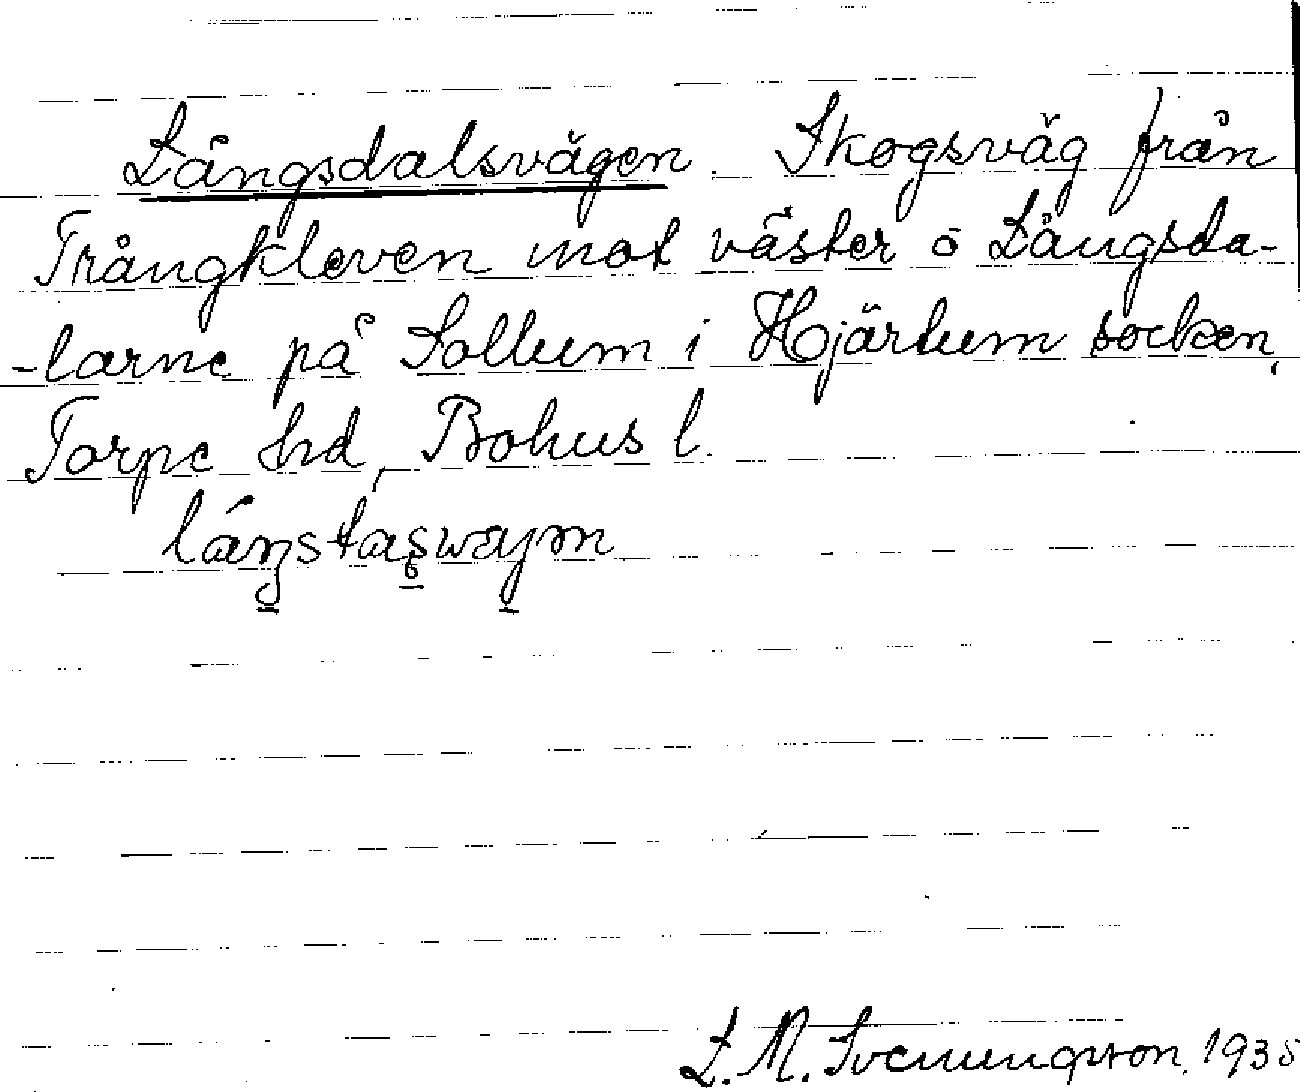 Långsdalsvägen. Skogsväg från
Trångkleven mot väster o Långsda-
-larne på Sollum i Hjärtum socken,
Torpe hd, Bohus l.
L. M. Svenungsson. 1935